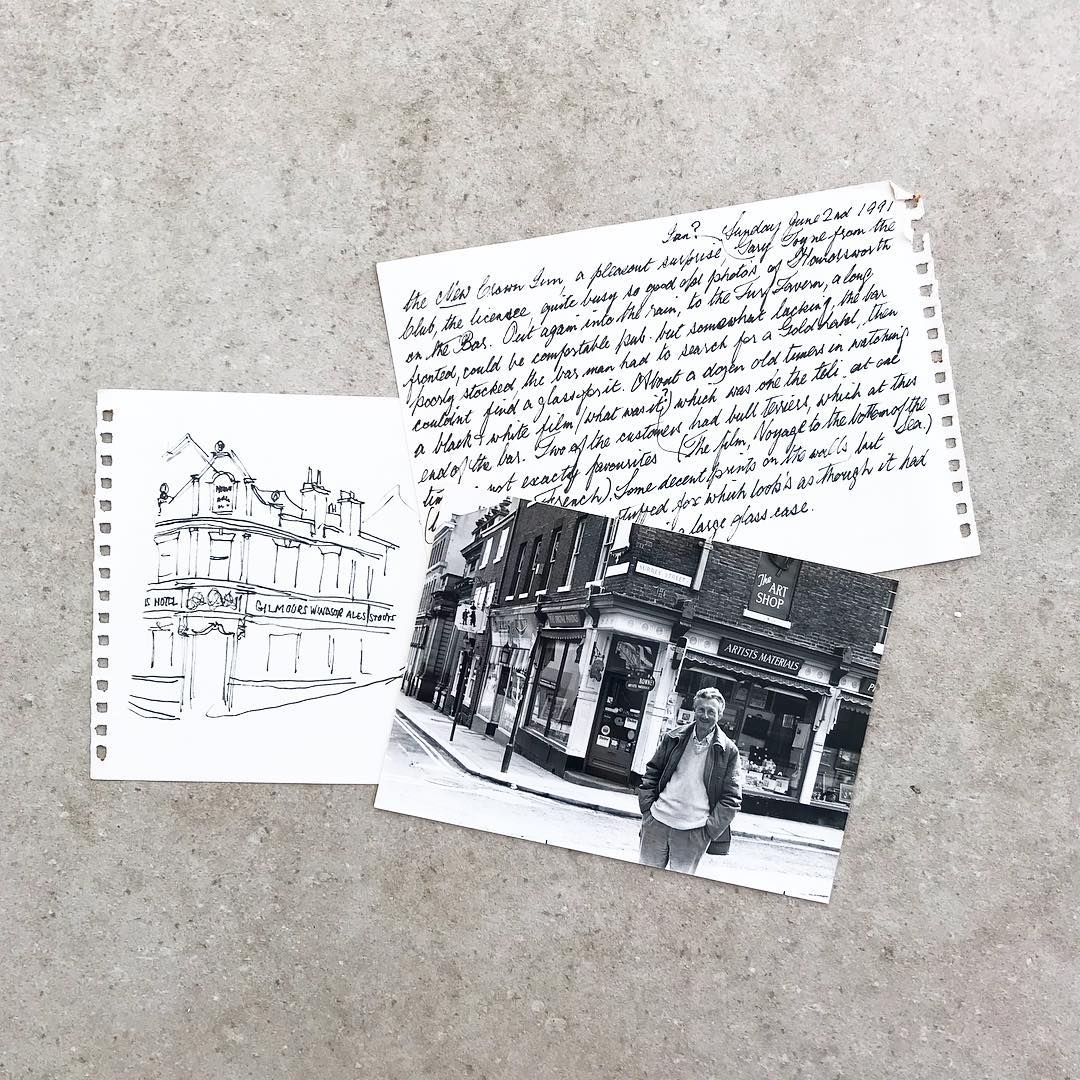 Sunday June 2nd 1991
the New Crown Inn, a pleasant surprise, Gary Toyne from the
Club, the licensee quite busy so good old photo's of Handsworth
on the Bar. Out again into the rain, to the Turf Tavern, a long
fronted, could be comfortable pub. but somewhat lacking, the bar
poorly stocked, the bar man had to search for a Gold label, then
couldnt find a glass for it. About a dozen old timers in watching
a black & white film (what was it?) which was one the teli. at one
end of the bar. Two of the customers had bull terriers, which at this
not exactly favourites (The film, Voyage to the bottom of the
French). Some decent prints on the walls but Sea.)
stuffed fox which look's as though it had
a large glass case.
S HOTEL
GILMOORS WINDSOR ALES STOUTS
SURREY STREET
The
ART
SHOP
ARTISTS MATERIALS
ROWNEY